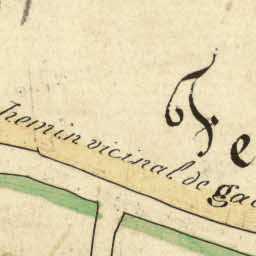 Fe
hemin vicinal de ga